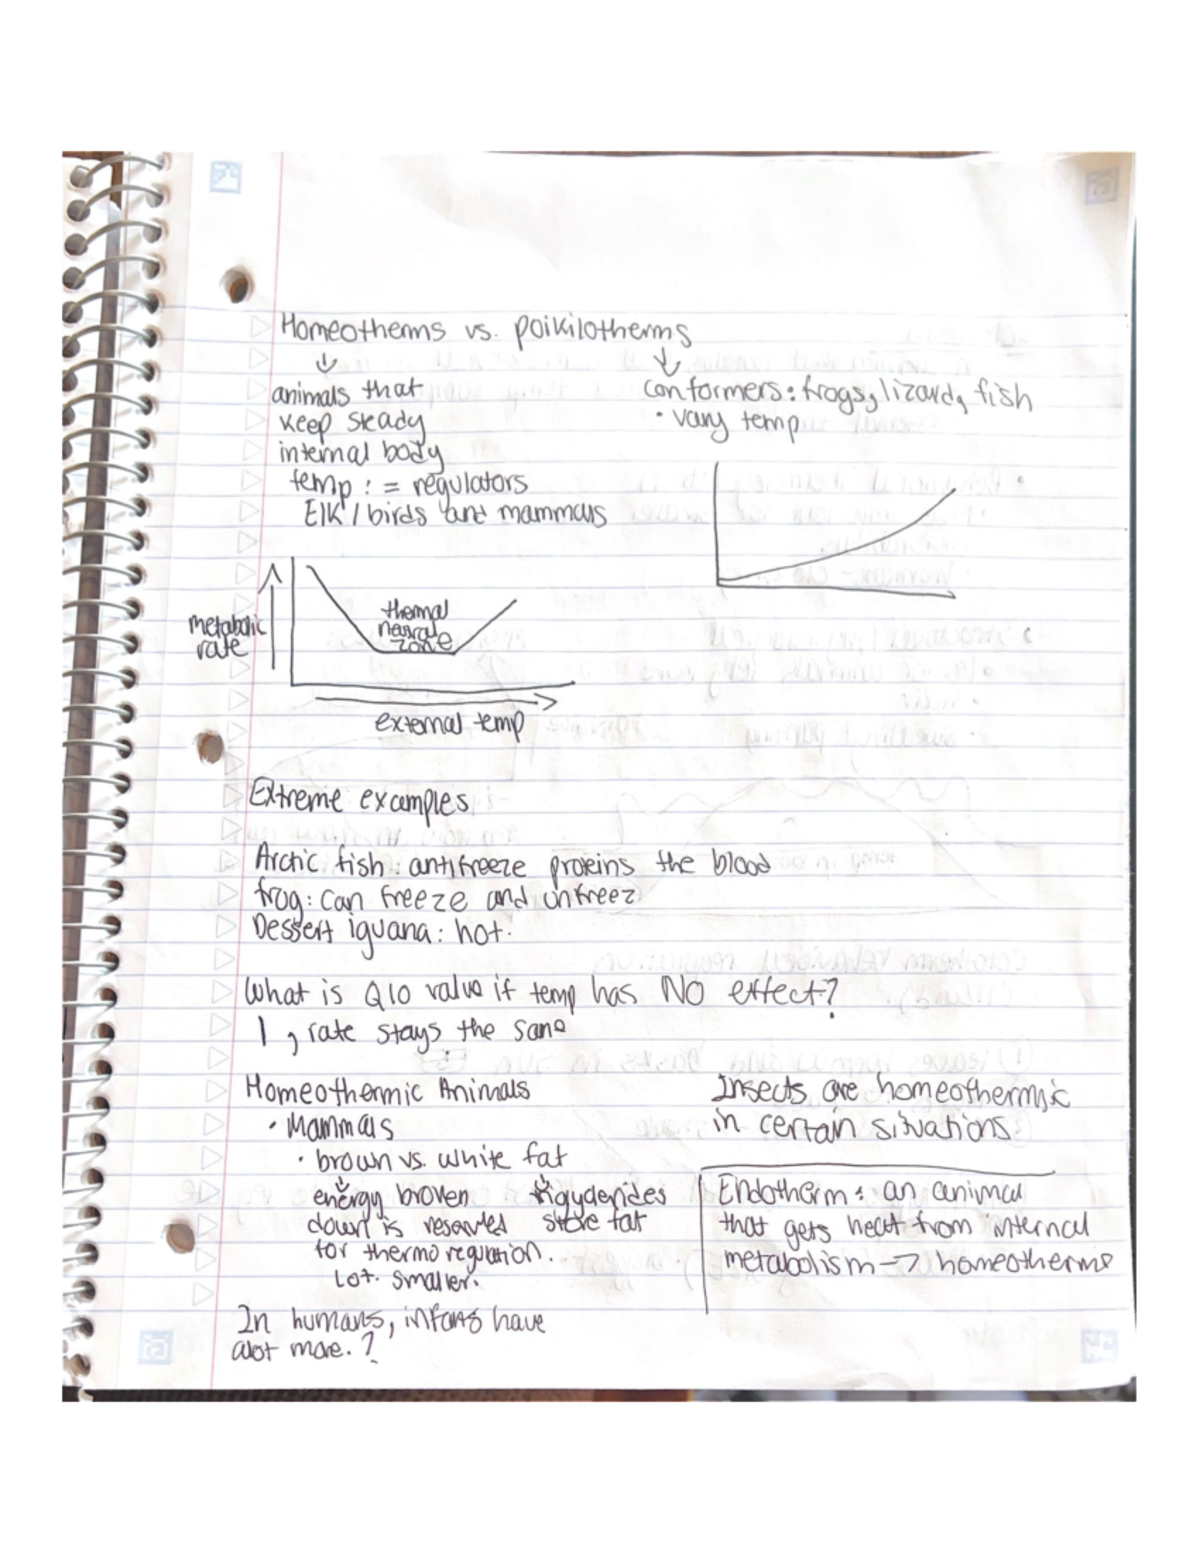 Homeotherms vs. poikilotherms
animals that
keep steady
internal body
temp : = regulators
Elk / birds and mammals
conformers : frogs, lizard, fish
• vary temp
metabolic
rate
thermal
zone
external temp
Extreme examples
Arctic fish : antifreeze proteins the blood
frog : can freeze and unfreez
Dessert iguana : hot.
What is Q10 value if temp has NO effect?
1, rate stays the same
Homeothermic Animals
• Mammals
• brown vs. white fat
energy broken
down is
for thermoregulation.
Lot. smaller.
store fat
In humans, infants have
alot more. ?
Insects are homeothermic
in certain situations.
Endotherm : an animal
that gets heat from internal
metabolism → homeotherms